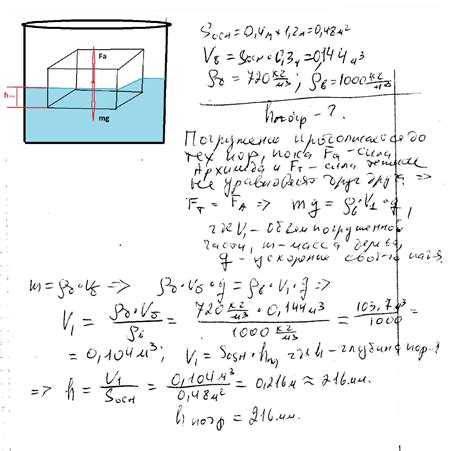 Fa
h
mg
Sосн = 0,4м * 1,2м = 0,48м²
Vб = Sосн * 0,3м = 0,144м³
ρб = 720 кг/м³; ρв = 1000 кг/м³
hпогр - ?
Погружение происходит до
тех пор, пока Fа - сила
Архимеда и Fт - сила тяжести
не уравновесят друг друга. =>
Fт = FА => mg = ρв · V₁ · g,
где V₁ - объём погруженной
части, m - масса дерева,
g - ускорение свобод. пад.
m = ρб · Vб => ρб · Vб · g = ρв · V₁ · g =>
V₁ = ρб · Vб / ρв = 720 кг/м³ · 0,144м³ / 1000 кг/м³ = 103,7м³ / 1000 =
= 0,104м³; V₁ = Sосн · h, где h - глубина погр.
=> h = V₁ / Sосн = 0,104м³ / 0,48м² = 0,216м ≈ 216мм.
hпогр = 216мм.
1